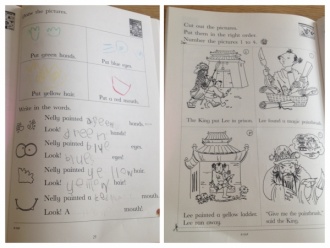 the pictures.
Put green hands.
Put blue eyes.
Put yellow hair.
Put a red mouth.
Write in the words.
Nelly painted green hands.
Look! green hands!
Nelly painted blue eyes.
Look! blue eyes!
Nelly painted yellow hair.
Look! yellow hair!
Nelly painted a mouth.
Look! A mouth!
Cut out the pictures.
Put them in the right order.
Number the pictures 1 to 8.
The King put Lee in prison.
Lee found a magic paintbrush.
Lee painted a yellow ladder.
Lee ran away.
"Give me the paintbrush,"
said the King.